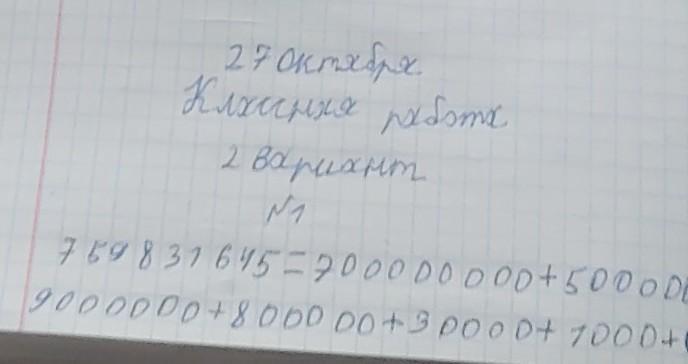 27 Октября
Классная работа
2 Вариант
№1
759831645=700000000+50000
9000000+800000+30000+1000+